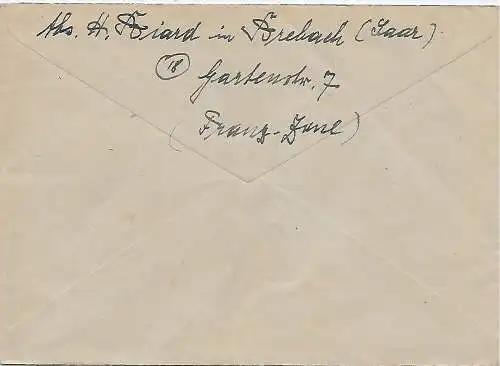 Abs. H. Biard in Brebach (Saar)
(18) Gartenstr. 7
(Franz. Zone)